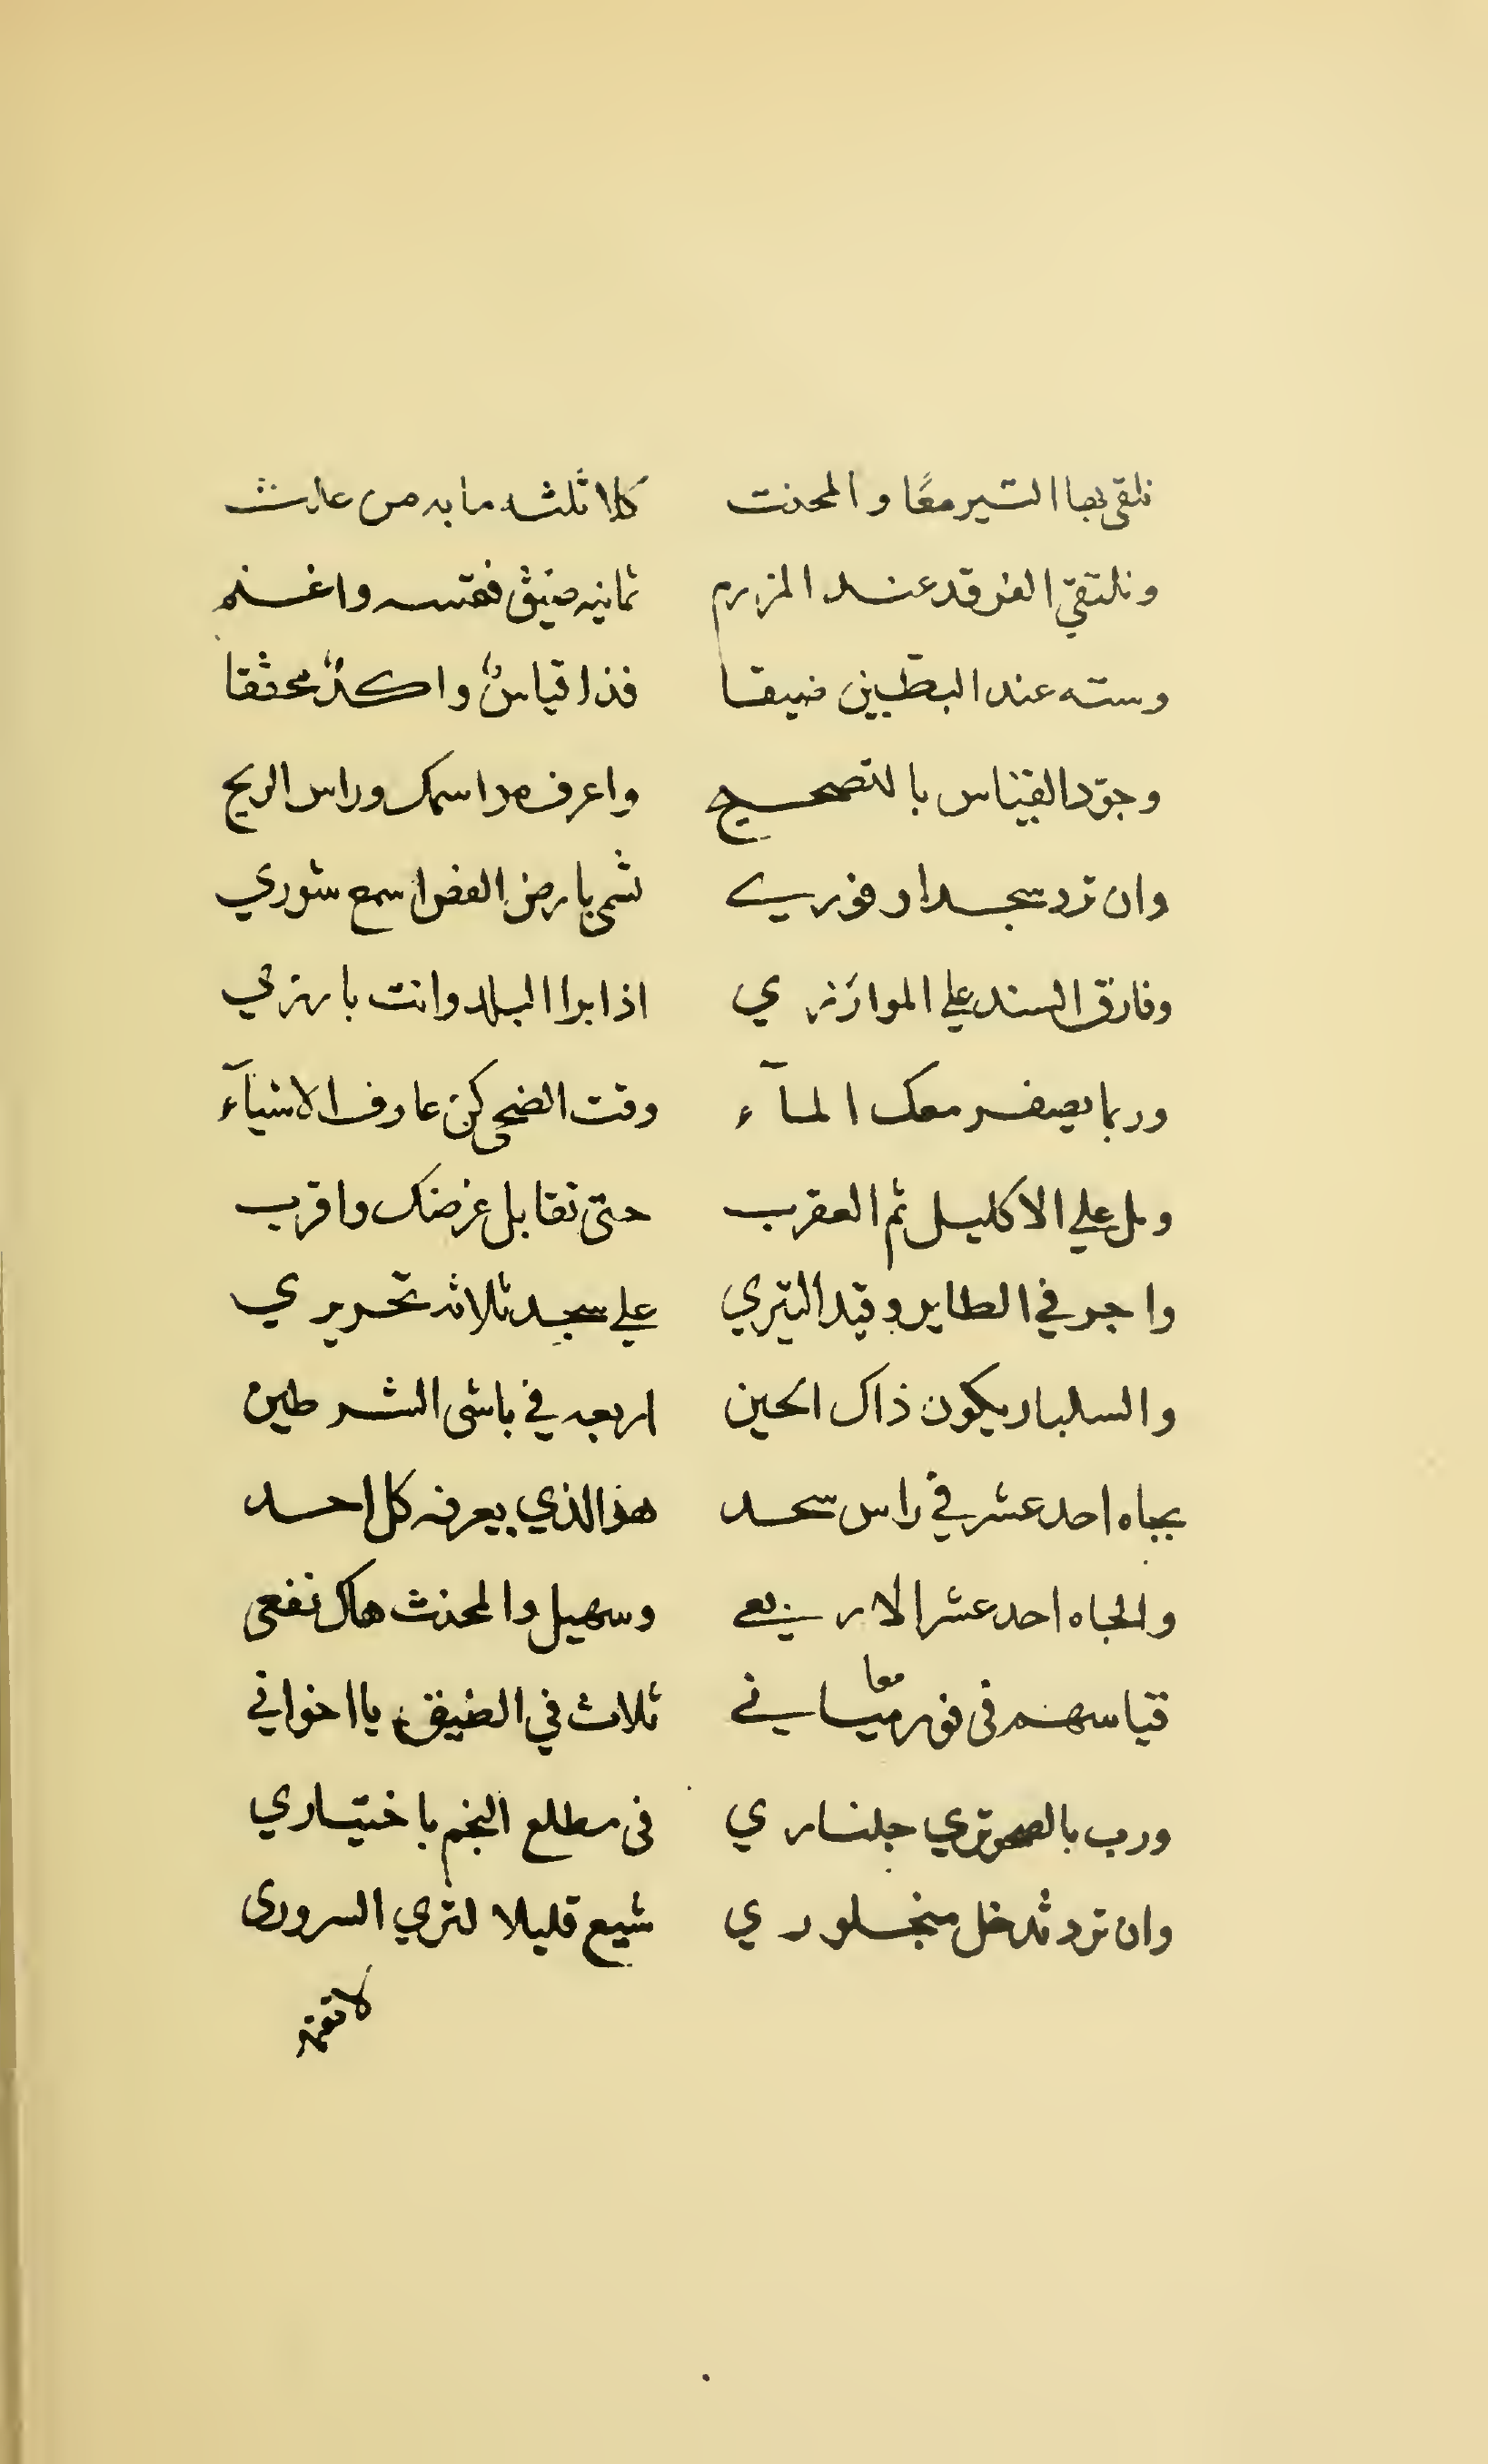 نلقي بها التير معًا والمحنث كلا ثلثه ما به من عابث
ونلتقي الفرقد عند المرزم ثمانيه ضيق فقسه واغنم
وسته عند البطين ضيقا فذا قياسٌ واكدٌ محققا
وجوّد القياس بالتصحيح واعرف مداسمك وراس الريح
وان ترد سجدا وفوري تسمى بارض الفضا اسمع شوري
وفارق السند علي الموارزي اذا برا البلد وانت بارزي
وربما يصفر معك المآء وقت الضحى كن عارف الاشيآء
ومل علي الاكليل ثم العقرب حتى تقابل غرضك واقرب
واجر في الطاير وقيد التيري علي سجد ثلاثه تحريري
والسلبار يكون ذاك الحين اربعه في باشى الشرطين
بجاه احد عشر في راس سجد هذا الذي يعرفه كل احد
والجاه احد عشر الا ربعي وسهيل والمحنث هاك نفعى
قياسهم في فور معا ثلاث في الضيق يا اخواني
ورب بالصحو تري جلناري في مطلع النجم باختياري
وان ترد تدخل منجلوري شيع قليلا لتري السروري